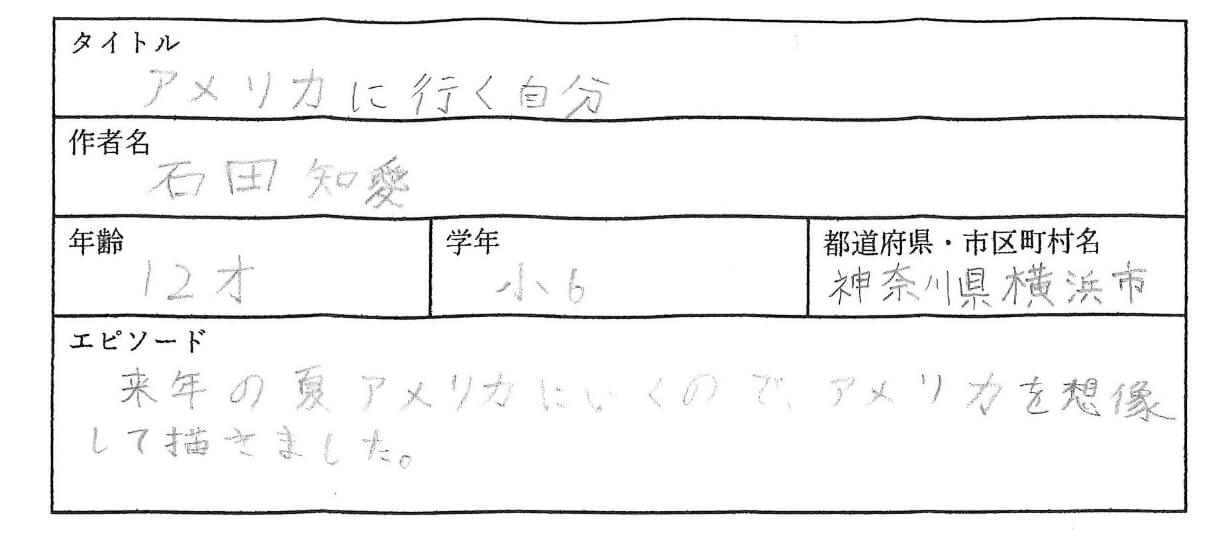 タイトル
アメリカに行く自分
作者名
石田知愛
年齢
12才
学年
小6
都道府県・市区町村名
神奈川県横浜市
エピソード
来年の夏アメリカにいくので、アメリカを想像
して描きました。